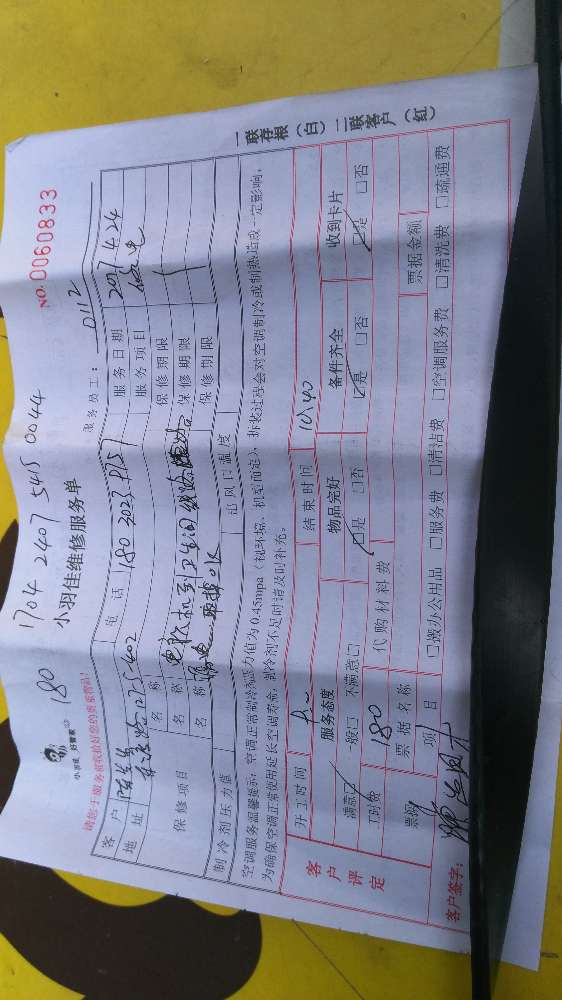 180 1704 2407 5415 0044
小羽佳 好管家
小羽佳维修服务单
NO. 0060833
请您于服务前收验好您的贵重物品!
服务员工: 0112
客户
电话 180 3023
服务日期 2017 4.24
地址 1275-402
服务项目
保修项目
名称
保修期限
名称
保修期限
名称
保修期限
制冷剂压力值
出风口温度
空调服务温馨提示:空调正常制冷剂压力值为0.45mpa(视环境、机型而定),拆装过程会对空调制冷或制热造成一定影响,
为确保空调正常使用延长空调寿命,制冷剂不足时请及时补充。
客户评定
开工时间
结束时间 10:40
服务态度
物品完好
备件齐全
收到卡片
满意□ 一般□ 不满意□
□是 □否
□是 □否
□是 □否
工时费 180
代购材料费
票据
票据名称
票据金额
项目
□搬办公用品 □服务费 □清洁费 □空调服务费 □清洗费 □疏通费
客户签字:
一联存根(白)二联客户(红)